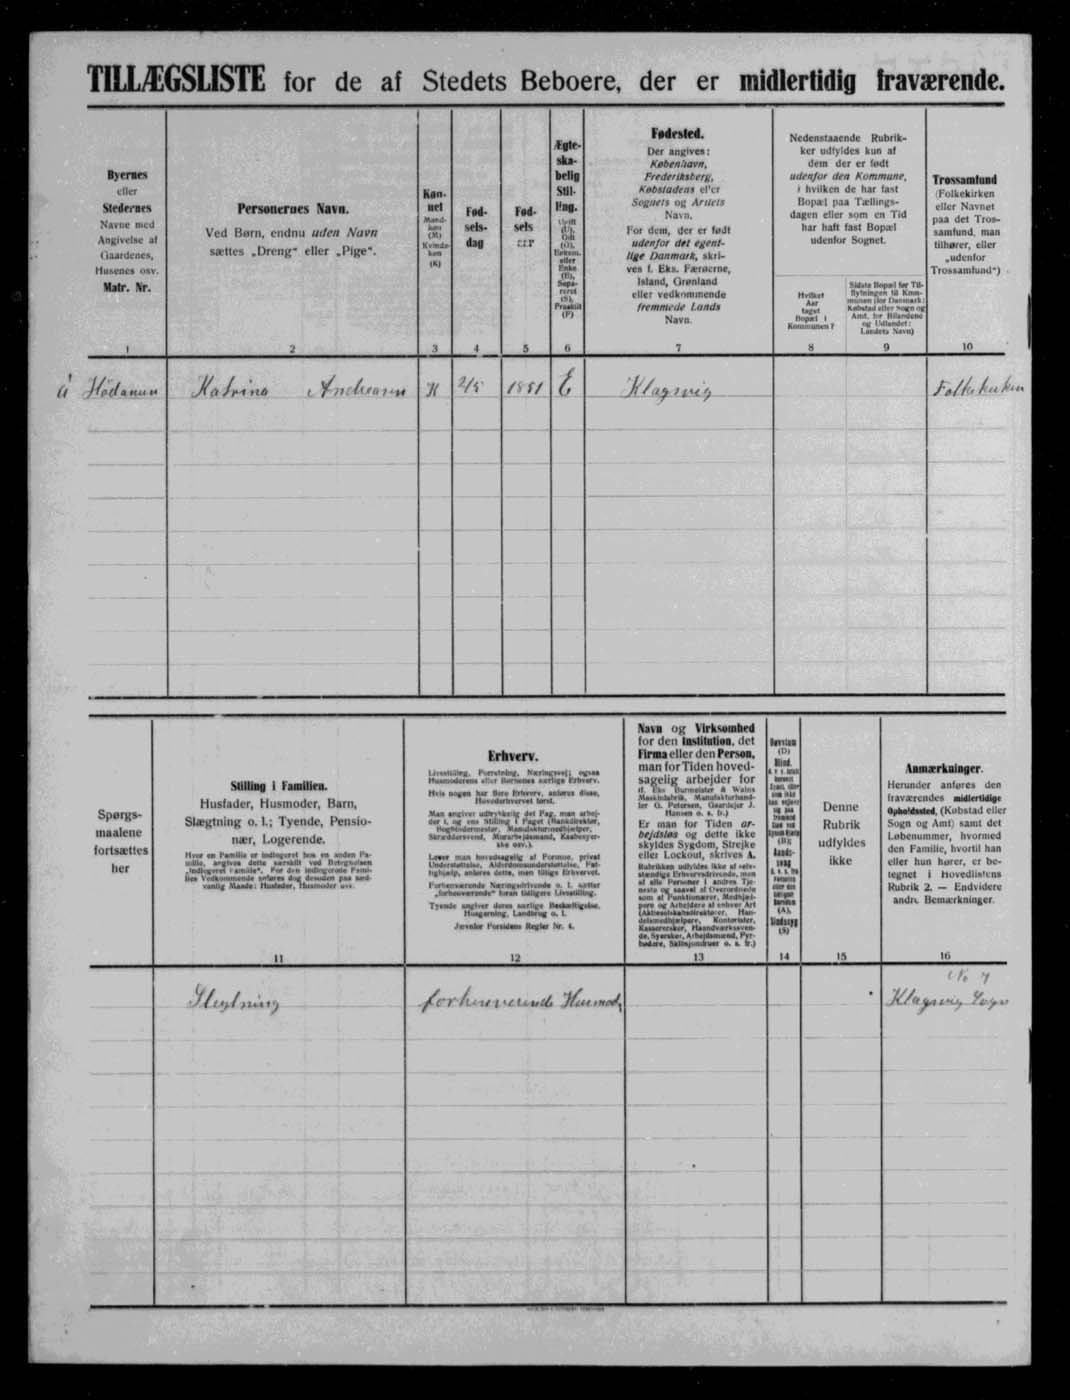 TILLÆGSLISTE for de af Stedets Beboere, der er midlertidig fraværende.
Byernes
eller
Stedernes
Navne med
Angivelse af
Gaardenes,
Husenes osv.
Matr. Nr.
1
Personernes Navn.
Ved Børn, endnu uden Navn
sættes „Dreng“ eller „Pige“.
2
Køn-
net
Mand-
køn
(M)
Kvinde-
køn
(K)
3
Fød-
sels-
dag
4
Fød-
sels
5
Ægte-
ska-
belig
Stil-
ling.
Ugift
(U),
Gift
(G),
Enkem.
eller
Enke
(E),
Sepa-
reret
(S),
Fraskilt
(F)
6
Fødested.
Der angives:
København,
Frederiksberg,
Købstadens el'er
Sognets og Amtets
Navn.
For dem, der er født
udenfor det egent-
lige Danmark, skri-
ves f. Eks. Færøerne,
Island, Grønland
eller vedkommende
fremmede Lands
Navn.
7
Nedenstaaende Rubrik-
ker udfyldes kun af
dem der er født
udenfor den Kommune,
i hvilken de har fast
Bopæl paa Tællings-
dagen eller som en Tid
har haft fast Bopæl
udenfor Sognet.
Hvilket
Aar
taget
Bopæl i
Kommunen?
8
Sidste Bopæl før Til-
flytningen til Kom-
munen (for Danmark:
Købstad eller Sogn og
Amt, for Bilandene
og Udlandet:
Landets Navn)
9
Trossamfund
(Folkekirken
eller Navnet
paa det Tros-
samfund, man
tilhører, eller
„udenfor
Trossamfund“)
10
Katrina Andreasen K 2/5 1851 E Klagsvig Folkekirken
Spørgs-
maalene
fortsættes
her
Stilling i Familien.
Husfader, Husmoder, Barn,
Slægtning o. l.; Tyende, Pensio-
nær, Logerende.
Hvor en Familie er indlogeret hos en anden Fa-
milie, angives dette særskilt ved Betegnelsen
„Indlogeret Familie“. For den indlogerede Fami-
lies Vedkommende anføres dog desuden paa sæd-
vanlig Maade: Husfader, Husmoder osv.
11
Erhverv.
Livsstilling, Forretning, Næringsvej; ogsaa
Husmoderens eller Børnenes særlige Erhverv.
Hvis nogen har flere Erhverv, anføres disse,
Hovederhvervet først.
Man angiver udtrykkelig det Fag, man arbej-
der i, og ens Stilling i Faget (Bankdirektør,
Bogbindermester, Manufakturmedhjælper,
Skræddersvend, Murarbejdsmand, Kaabesyer-
ske osv.).
Lever man hovedsagelig af Formue, privat
Understøttelse, Alderdomsunderstøttelse, Fat-
tighjælp, anføres dette, men tillige Erhvervet.
Forhenværende Næringsdrivende o. l. sætter
„forhenværende“ foran tidligere Livsstilling.
Tyende angiver deres særlige Beskæftigelse,
Husgerning, Landbrug o. l.
Jævnfør Forsidens Regler Nr. 4.
12
Navn og Virksomhed
for den Institution, det
Firma eller den Person,
man for Tiden hoved-
sagelig arbejder for
(f. Eks Burmeister & Wains
Maskinfabrik, Manufakturhand-
ler G. Petersen, Gaardejer J.
Hansen o. s. fr.)
Er man for Tiden ar-
bejdsløs og dette ikke
skyldes Sygdom, Strejke
eller Lockout, skrives A.
Rubrikken udfyldes ikke af selv-
stændige Erhvervsdrivende, men
af alle Personer i andres Tje-
neste og saavel af Overordnede
som af Funktionærer, Medhjæl-
pere og Arbejdere af enhver Art
(Aktieselskabsdirektører, Han-
delsmedhjælpere, Kontorister,
Kasserersker, Haandværkssven-
de, Syersker, Arbejdsmænd, Fyr-
bødere, Skibsjomfruer o. s. fr.)
13
Døvstum
(D)
Blind,
14
Denne
Rubrik
udfyldes
ikke
15
Anmærkninger.
Herunder anføres den
fraværendes midlertidige
Opholdssted, (Købstad eller
Sogn og Amt) samt det
Løbenummer, hvormed
den Familie, hvortil han
eller hun hører, er be-
tegnet i Hovedlistens
Rubrik 2. — Endvidere
andre Bemærkninger.
16
Slegtning forhenverende Husmod. No 7
Klagsvig Sogn